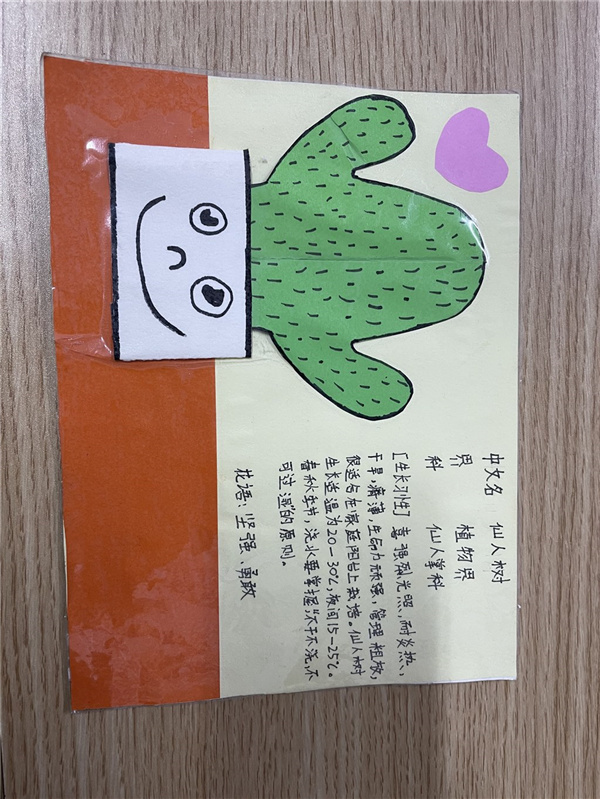 中文名 仙人树
界 植物界
科 仙人掌科
[生长习性] 喜强烈光照,耐炎热、
干旱,瘠薄,生命力顽强,管理粗放,
很适合在家庭阳台上栽培。仙人树
生长适温为20—30℃,夜间15—25℃。
春秋季节,浇水要掌握“不干不浇,不
可过湿”的原则。
花语:坚强、勇敢